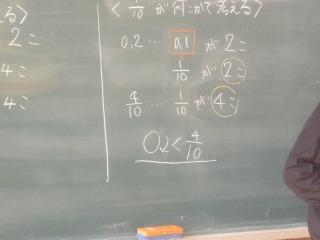 る〉
2こ
4こ
4こ
〈1/10が何こかで考える〉
0.2… 0.1が2こ
1/10が2こ
4/10…1/10が4こ
0.2<4/10